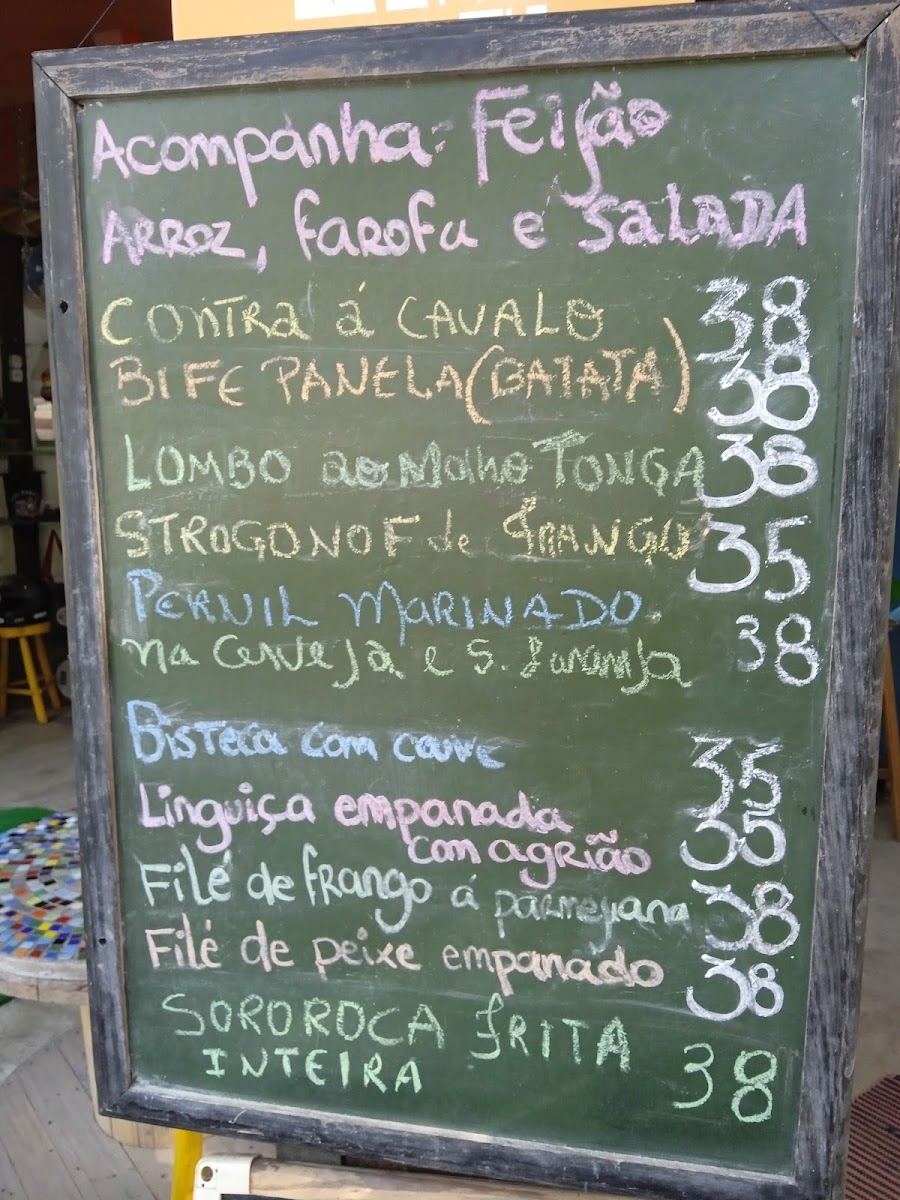 Acompanha: Feijão
ARROZ, farofa e SALADA
CONTRA á CAVALO 38
BIFE PANELA (BATATA) 38
LOMBO ao Molho TONGA 38
STROGONOF de FRANGO 35
PERNIL MARINADO.
na Cerveja e S. Laranja 38
Bisteca com couve 35
Linguiça empanada
com agrião 35
Filé de frango á parmeyana 38
Filé de peixe empanado 38
SOROROCA FRITA
INTEIRA 38